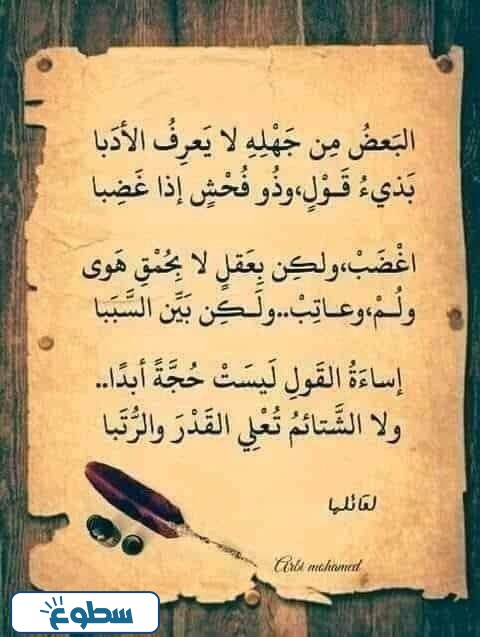 البَعضُ مِن جَهْلِهِ لا يَعرِفُ الأدَبا
بَذيءُ قَــوْلٍ،وذُو فُحْشٍ إذا غَضِبا
اغْضَبْ،ولكِن بِعَقلٍ لا بِحُمْقِ هَوى
ولُــمْ،وعــاتِبْ..ولَــكِن بَيِّن السَّبَبا
إساءَةُ القَولِ لَيسَتْ حُجَّةً أبدًا..
ولا الشَّتائمُ تُعْلِي القَدْرَ والرُّتَبا
لقائلها
Arbi mohamed
سطوع